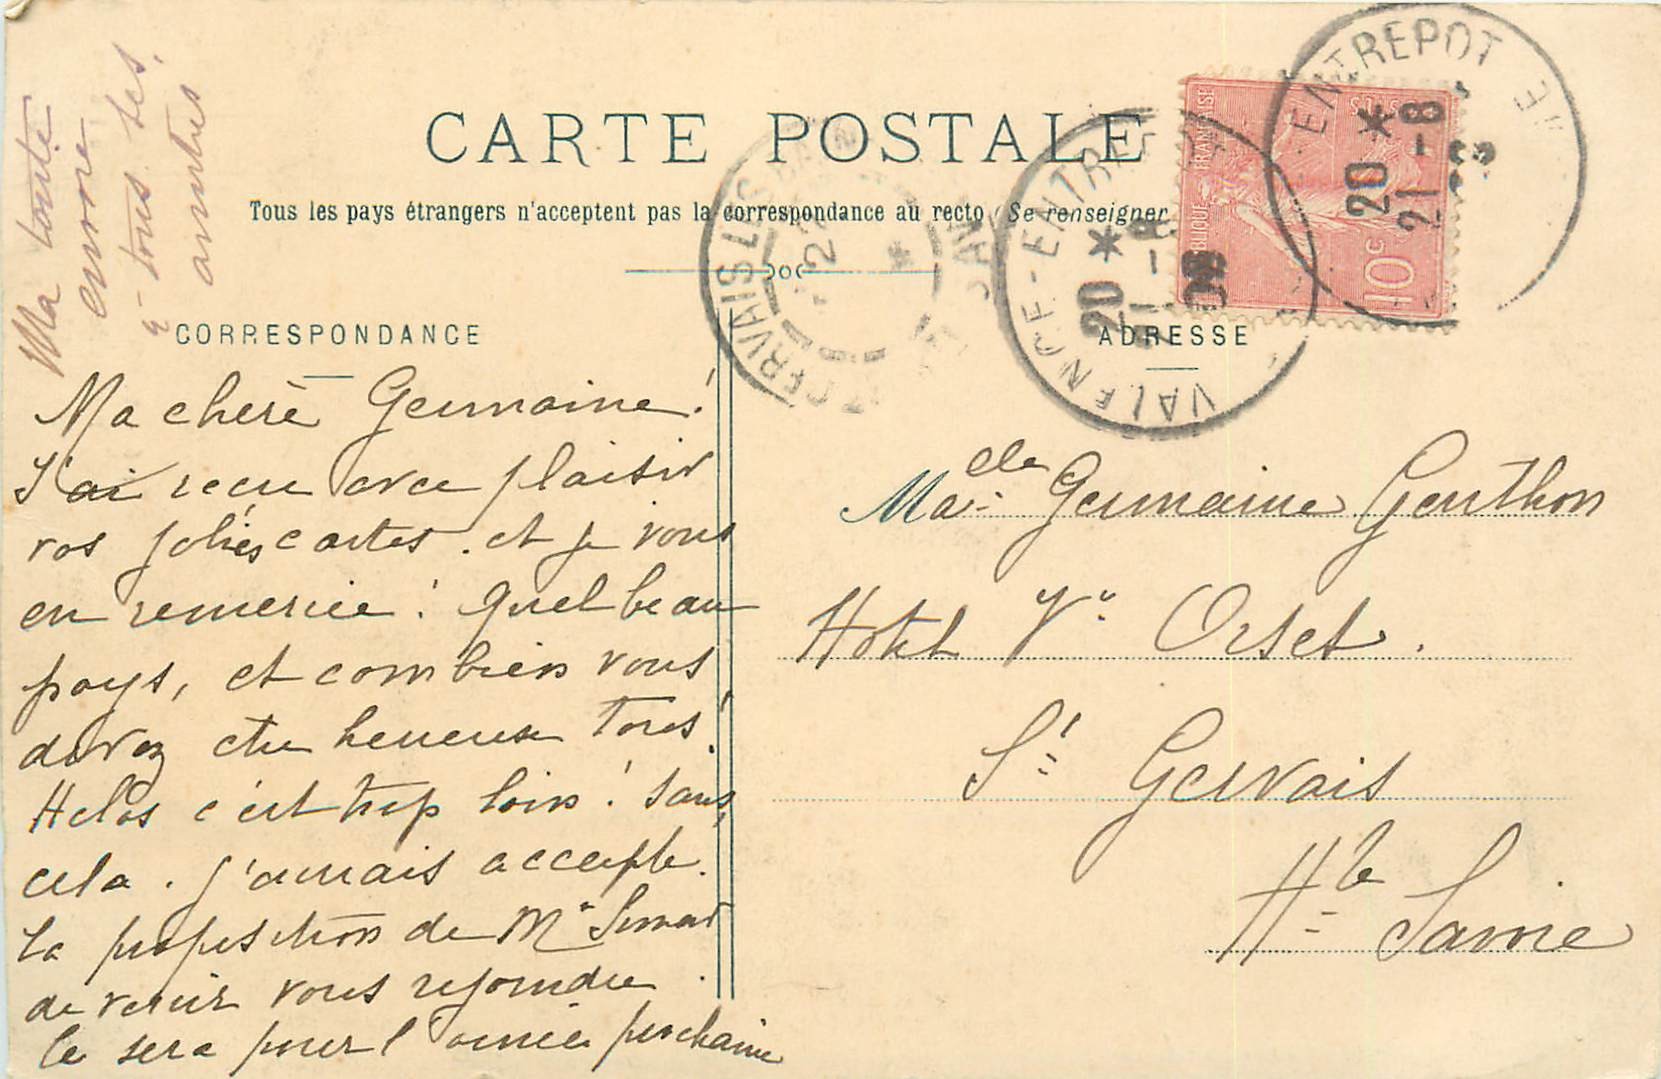 CARTE POSTALE
Tous les pays étrangers n'acceptent pas la correspondance au recto (Se renseigner
CORRESPONDANCE
ADRESSE
Ma tante
envoie
à tous ses
amitiés
Ma chère Germaine!
J'ai recu avec plaisir
vos jolies cartes. et je vous
en remercie! Quel beau
pays, et combien vous
devez etre heureuse tous!
Helas c'est trop loin! Sans
cela. j'aurais accepte.
la proposition de Mr
de venir vous rejoindre.
ce sera pour l'année prochaine
Madelle Germaine Genthon
Hotel Ve Orset.
St Gervais
Hte Savoie
10c
FRANÇAISE
VALENCE-ENTR
20 *
21 -8
08
ENTREPOT
20 *
21 -8
ST GERVAIS LES BAINS
22
*